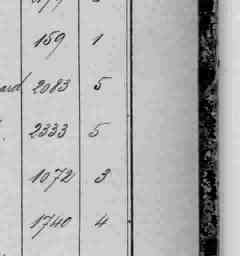 159 1
2083 5
2333 5
1072 3
1740 4